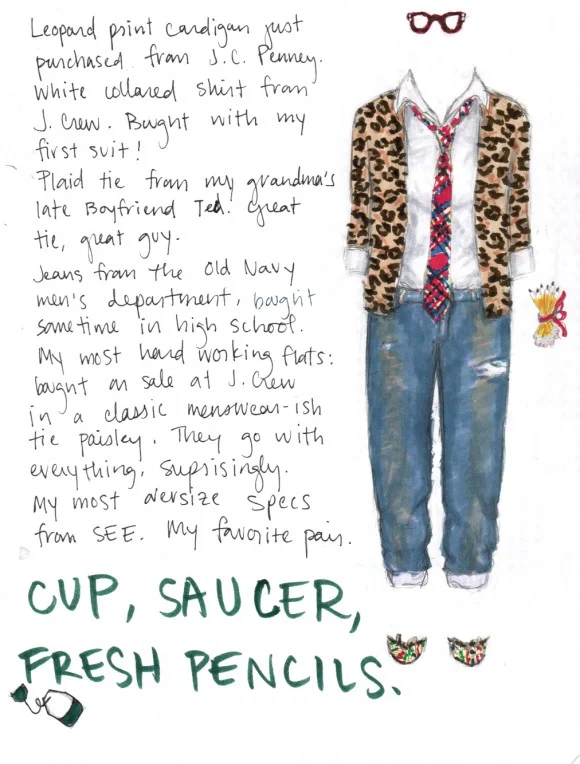 Leopard print cardigan just
purchased from J.C. Penney.
White collared shirt from
J. Crew. Bought with my
first suit!
Plaid tie from my grandma's
late Boyfriend Ted. Great
tie, great guy.
Jeans from the Old Navy
men's department, bought
sometime in high school.
My most hard working flats:
bought on sale at J. Crew
in a classic menswear-ish
tie paisley. They go with
everything, suprisingly.
My most oversize specs
from SEE. My favorite pair.
CUP, SAUCER,
FRESH PENCILS.